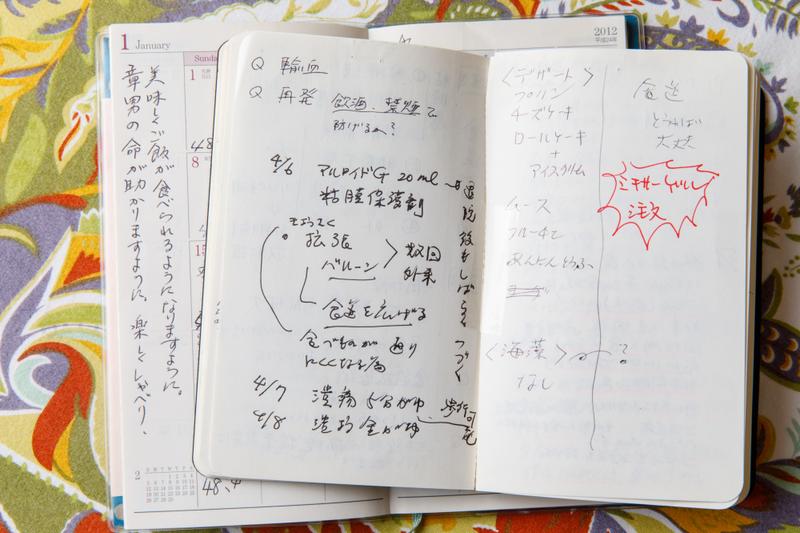 1 January
2012
平成24年
Sunday
1
8
15
48
48.4
2
美味しくご飯が食べられるようになりますように。
章男の命が助かりますように、楽しくしゃべり、
Q 輸血
Q 再発 飲酒、禁煙で
防げるか?
4/6 アルロイドG 20ml
粘膜保護剤
退院後もしばらくつづく
きょうさく
拡張
バルーン
数回
外来
食道を広げる
食べものが通り
にくくなる為
4/7 潰瘍 5分かゆ
4/8 潰瘍 全がゆ
歩行可能
〈デザート〉
プリン
チーズケーキ
ロールケーキ
+
アイスクリーム
ムース
フルーチェ
あんにんどうふ
〈海藻〉
?
なし
食道
とうれば
大丈夫
ミキサーゲル
注文